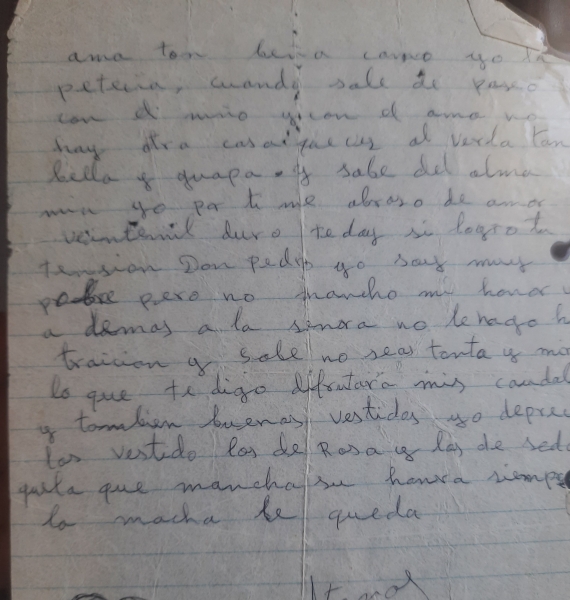 ama tan bella como yo la
peteña, cuando sale de paseo
con el niño y con el ama no
hay otra cosa que cer al verda tan
bella y guapa y sabe del alma
mia yo por ti me abraso de amor
veintemil duro te doy si logro tu
tension Don pedro yo soy muy
pobre pero no mancho mi honor y
a demas a la senora no le hago
traicion y Sole no seas tonta y
lo que te digo difrutara mis
y tambien buenos vestidos yo
los vestido los de Rosa y los de seda
que la que mancha su honra siempre
la macha le queda